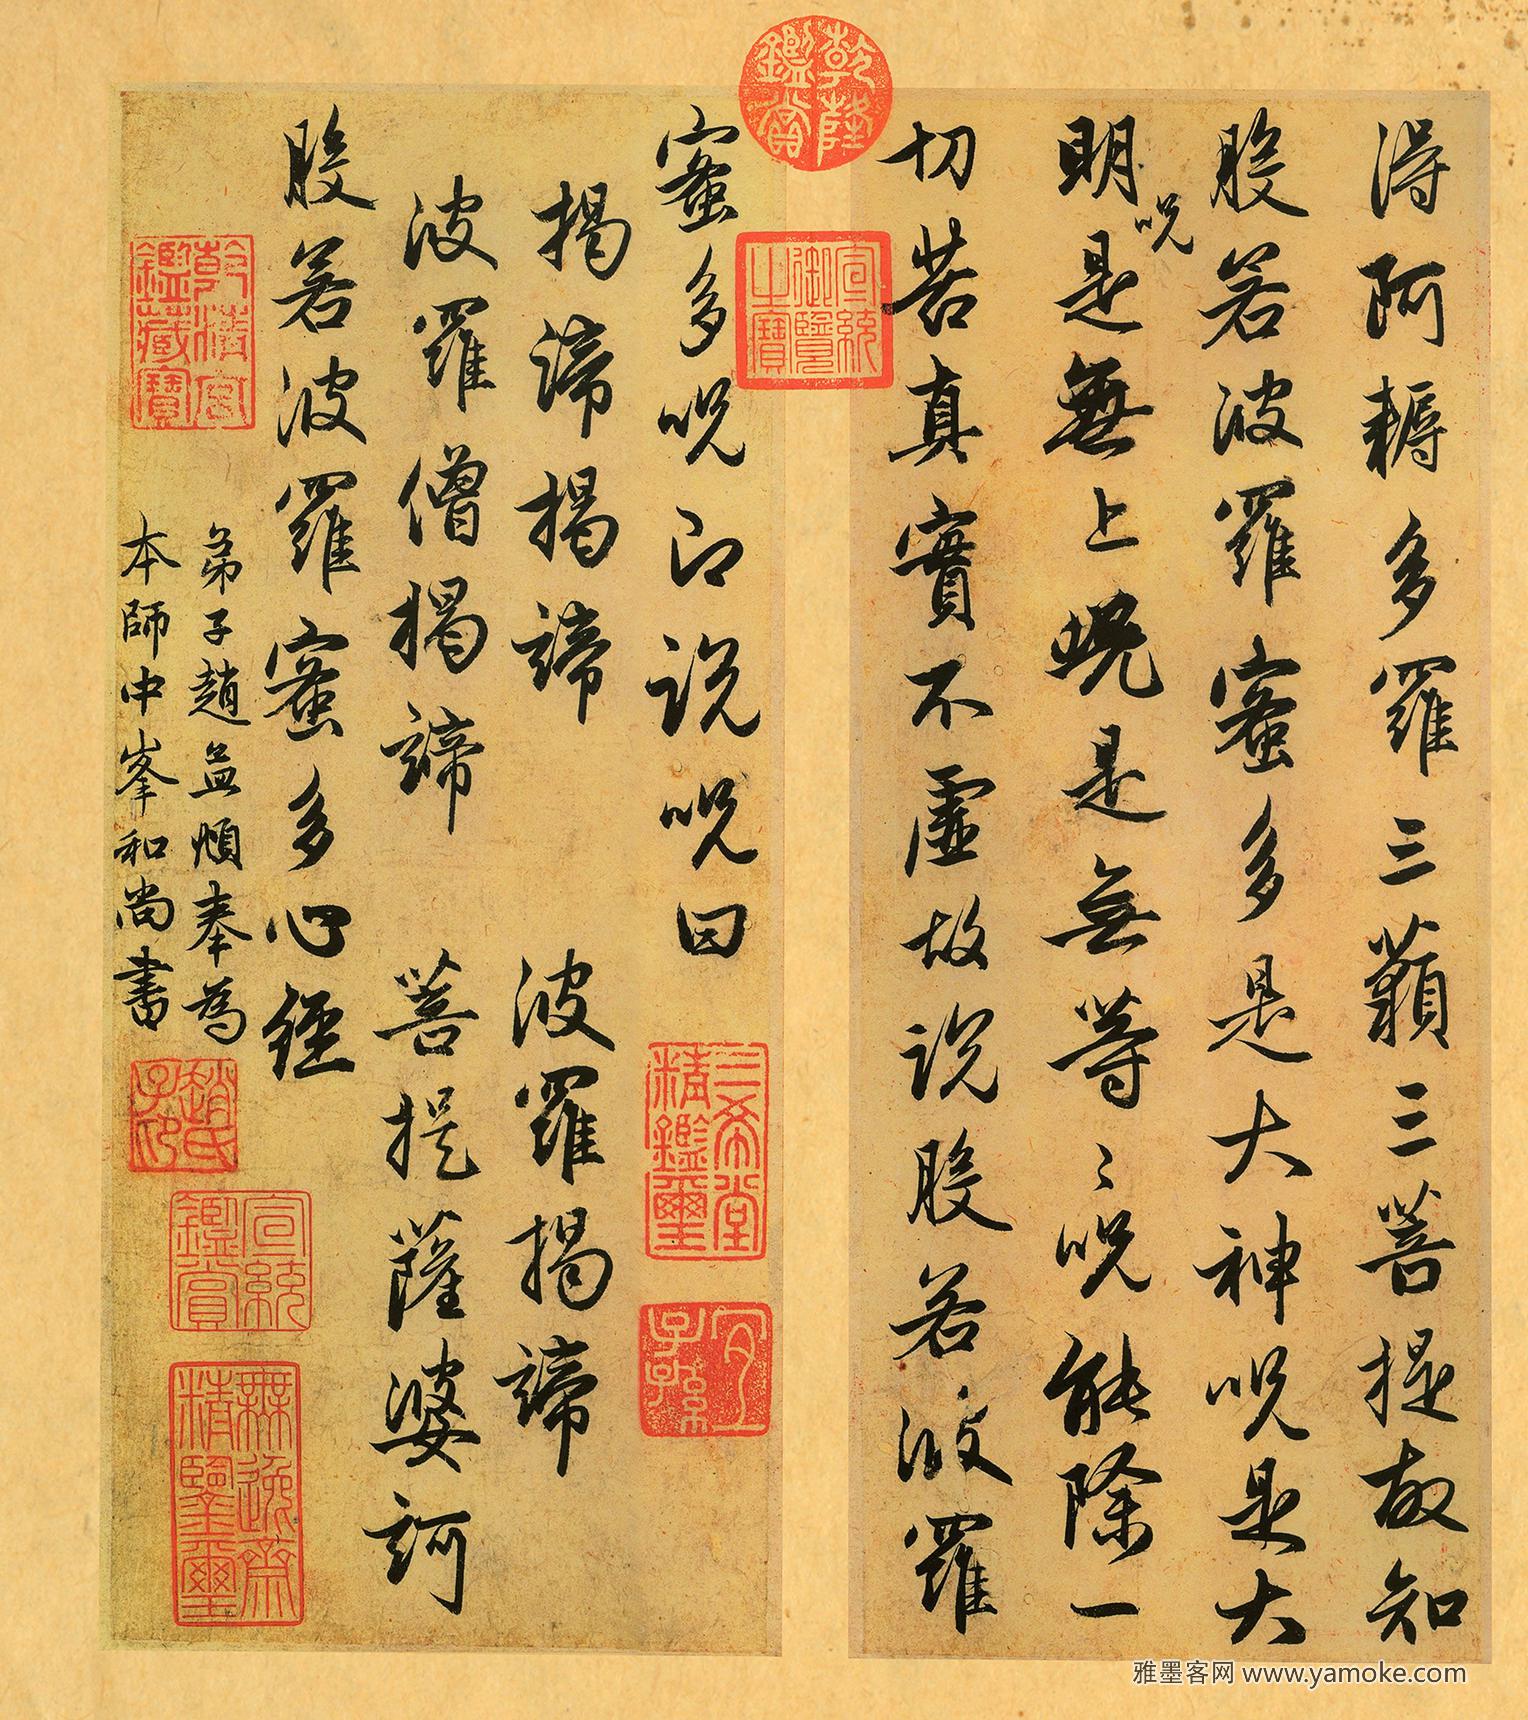 得阿耨多羅三藐三菩提故知
般若波羅蜜多是大神呪是大
明呪是無上呪是無等〻呪能除一
切苦真實不虛故說般若波羅
蜜多呪即說呪曰
揭諦揭諦 波羅揭諦
波羅僧揭諦 菩提薩婆訶
般若波羅蜜多心經
弟子趙孟頫奉為
本師中峯和尚書
乾隆鑑賞
宣統御覽之寶
三希堂精鑑璽
宜子孫
乾清宮鑑藏寶
趙氏子印
宣統鑑賞
無逸齋精鑒璽
雅墨客网 www.yamoke.com